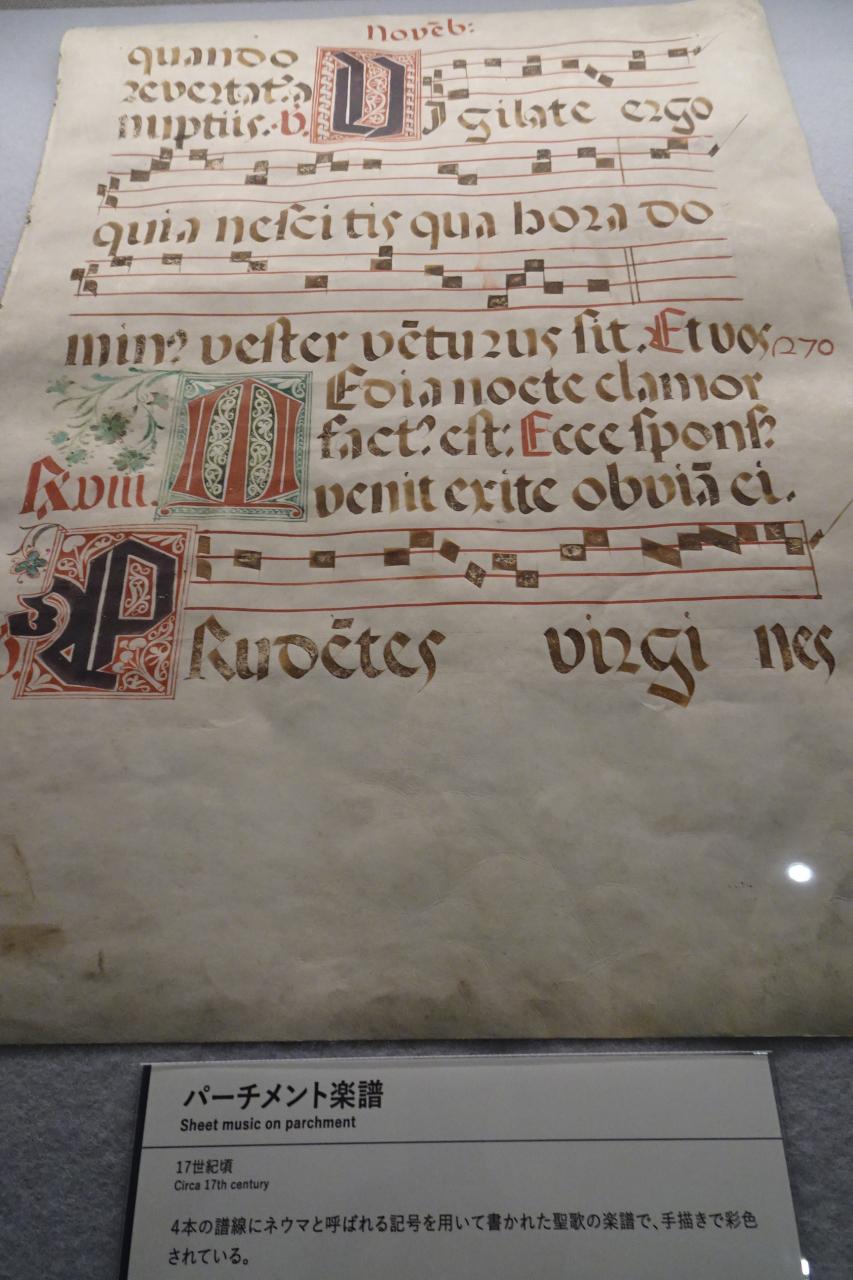 Novēb:
quando
revertat᷑ a
nuptiis. V.
VIgilate ergo
quia nescitis qua hora do
min? vester vēturus sit. Et vos
270
MEdia nocte clamor
fact? est: Ecce spons?
R. viii. venit exite obviā ei.
PRudētes virgi nes
パーチメント楽譜
Sheet music on parchment
17世紀頃
Circa 17th century
4本の譜線にネウマと呼ばれる記号を用いて書かれた聖歌の楽譜で、手描きで彩色
されている。